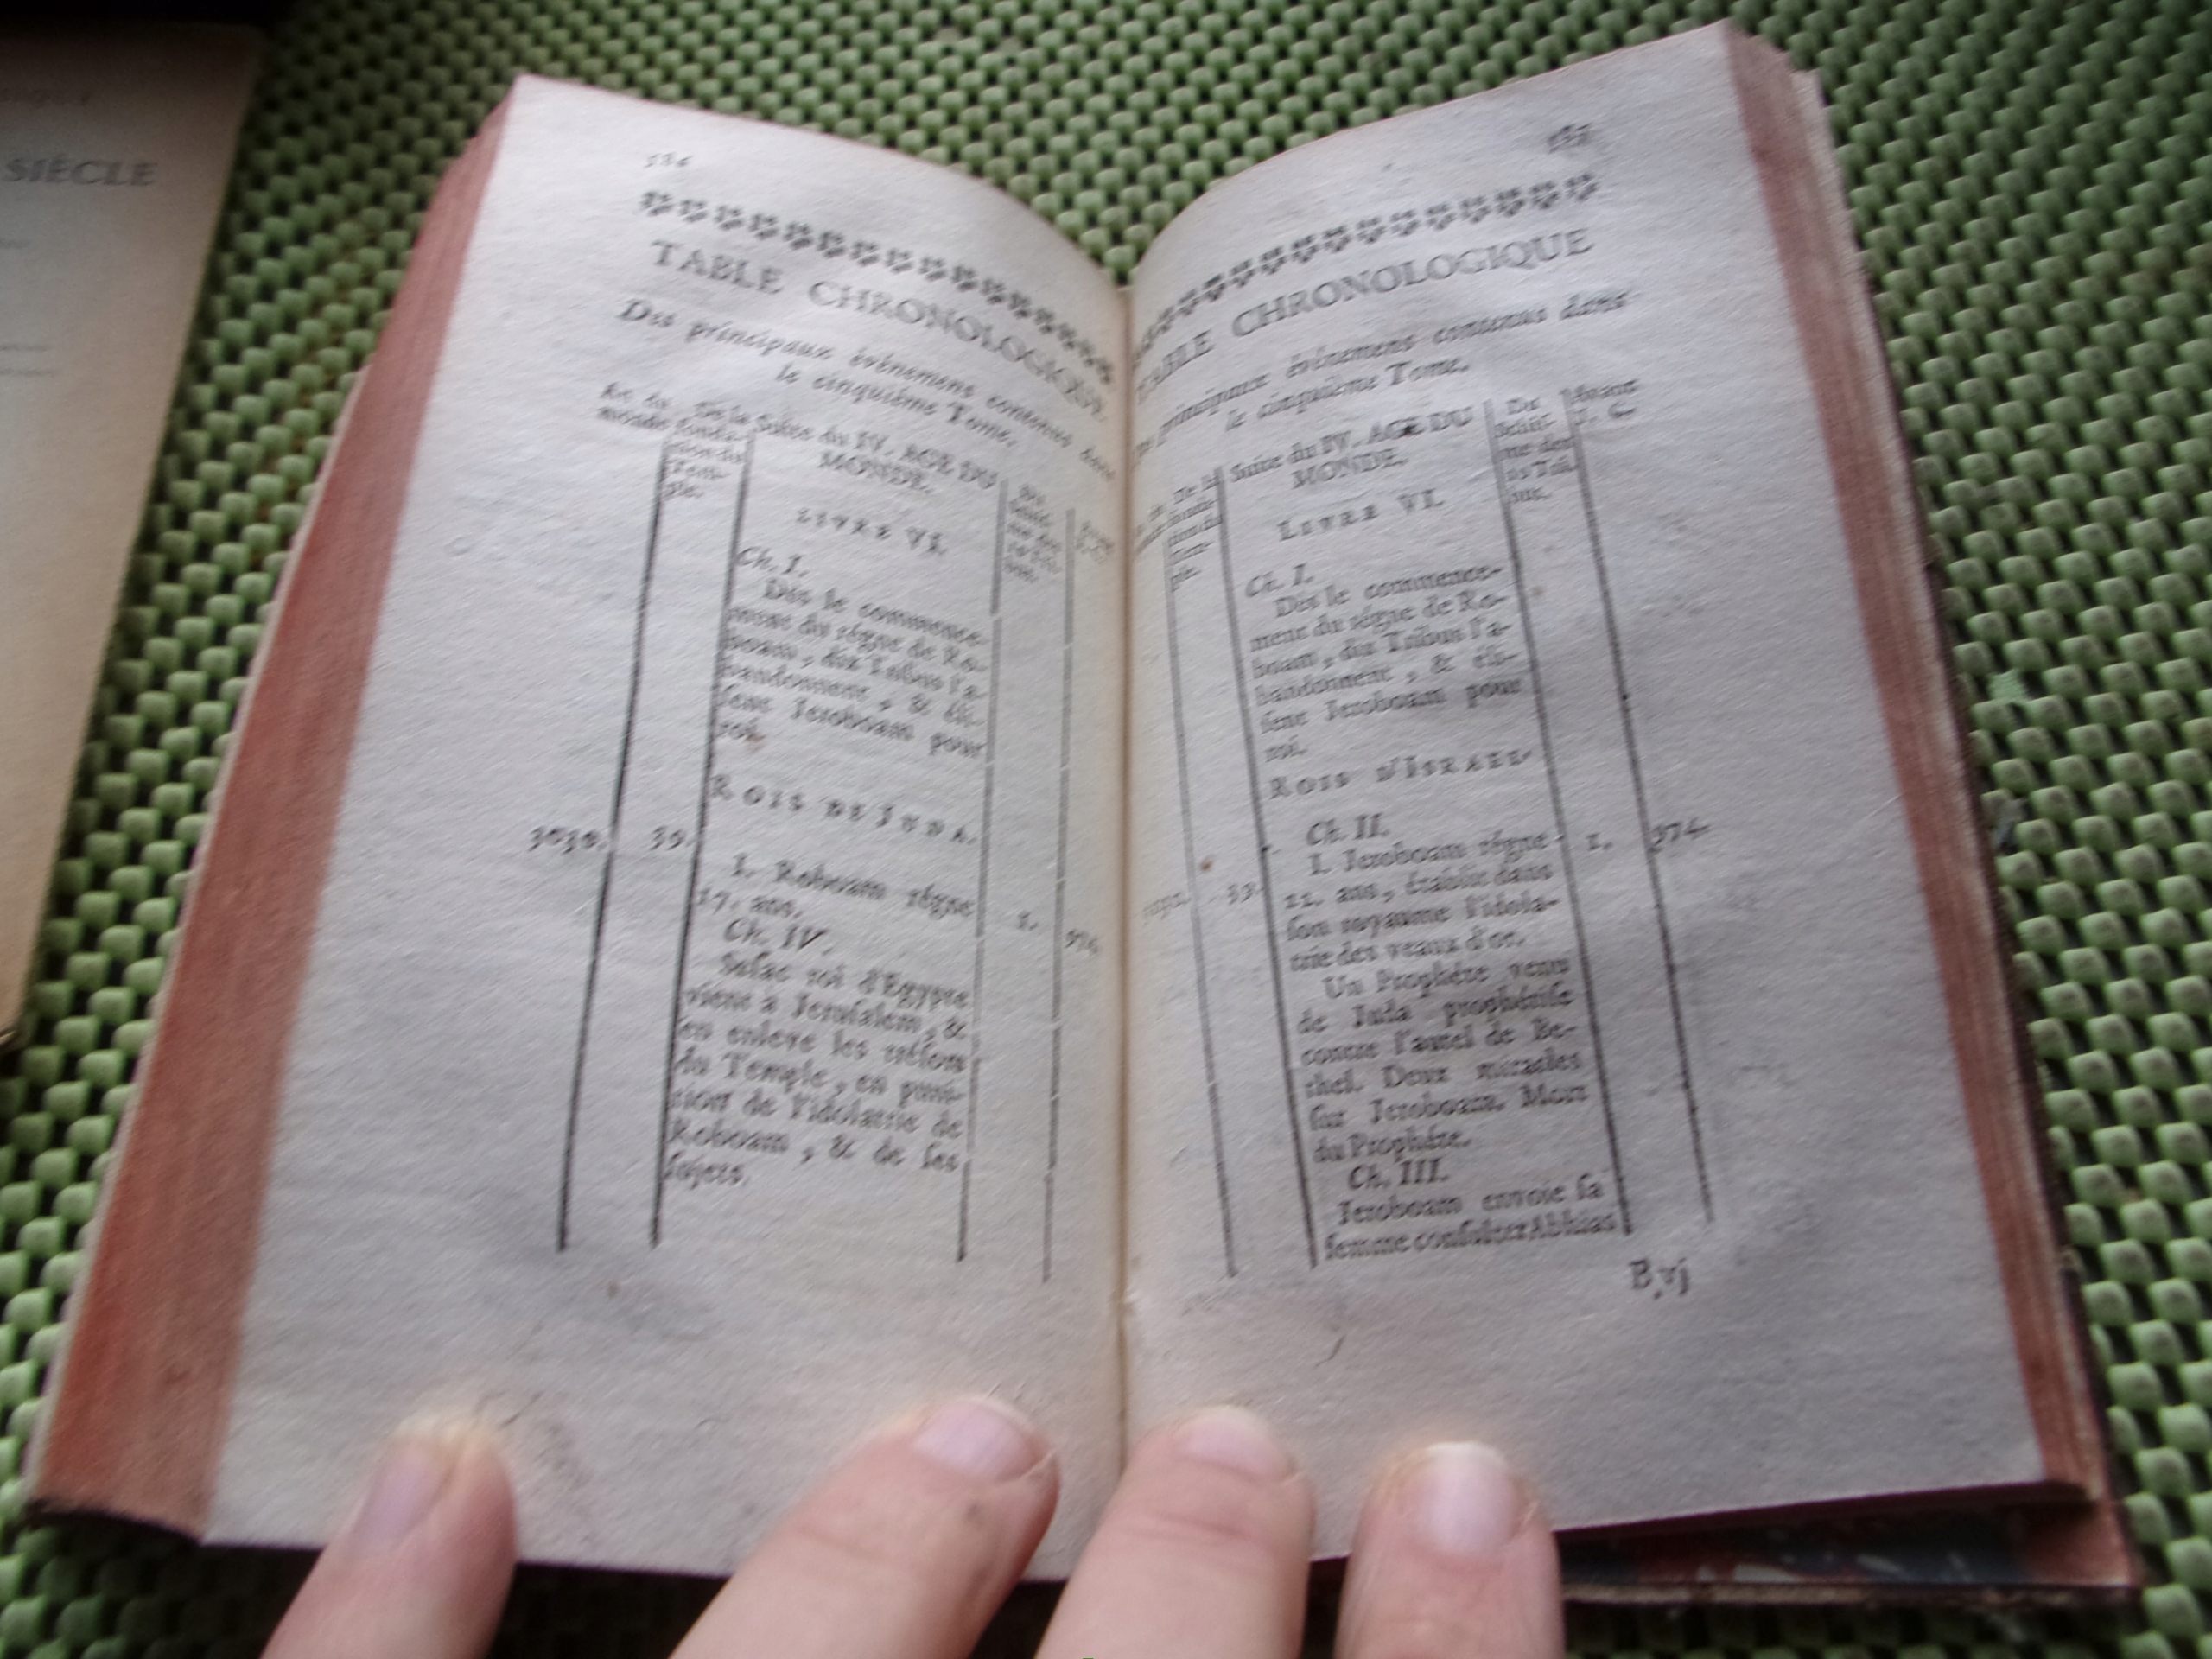 SIÈCLE
TABLE CHRONOLOGIQUE
Des principaux évènemens contenus dans
le cinquième Tome.
An du
monde
De la
fonda-
tion du
Tem-
ple.
Suite du IV. AGE DU
MONDE.
LIVRE VI.
Ch. I.
Dès le commence-
ment du régne de Ro-
boam, dix Tribus l'a-
bandonnent, & éli-
ſent Jeroboam pour
roi.
ROIS DE JUDA.
39.
I. Roboam régne
17. ans.
1.
Ch. IV.
Seſac roi d'Egypte
vient à Jeruſalem, &
en enleve les tréſors
du Temple, en puni-
tion de l'idolatrie de
Roboam, & de ſes
ſujets.
TABLE CHRONOLOGIQUE
principaux évènemens contenus dans
le cinquième Tome.
De la
fonda-
tion du
Tem-
ple.
Suite du IV. AGE DU
MONDE.
LIVRE VI.
Avant
J. C.
Ch. I.
Dès le commence-
ment du régne de Ro-
boam, dix Tribus l'a-
bandonnent, & éli-
ſent Jeroboam pour
roi.
ROIS D'ISRAEL.
Ch. II.
I. Jeroboam régne
22. ans, établit dans
ſon royaume l'idola-
trie des veaux d'or.
1.
974.
Un Prophéte venu
de Juda prophétiſe
contre l'autel de Be-
thel. Deux miracles
ſur Jeroboam. Mort
du Prophéte.
Ch. III.
Jeroboam envoie ſa
femme conſulter Abhias
B vj